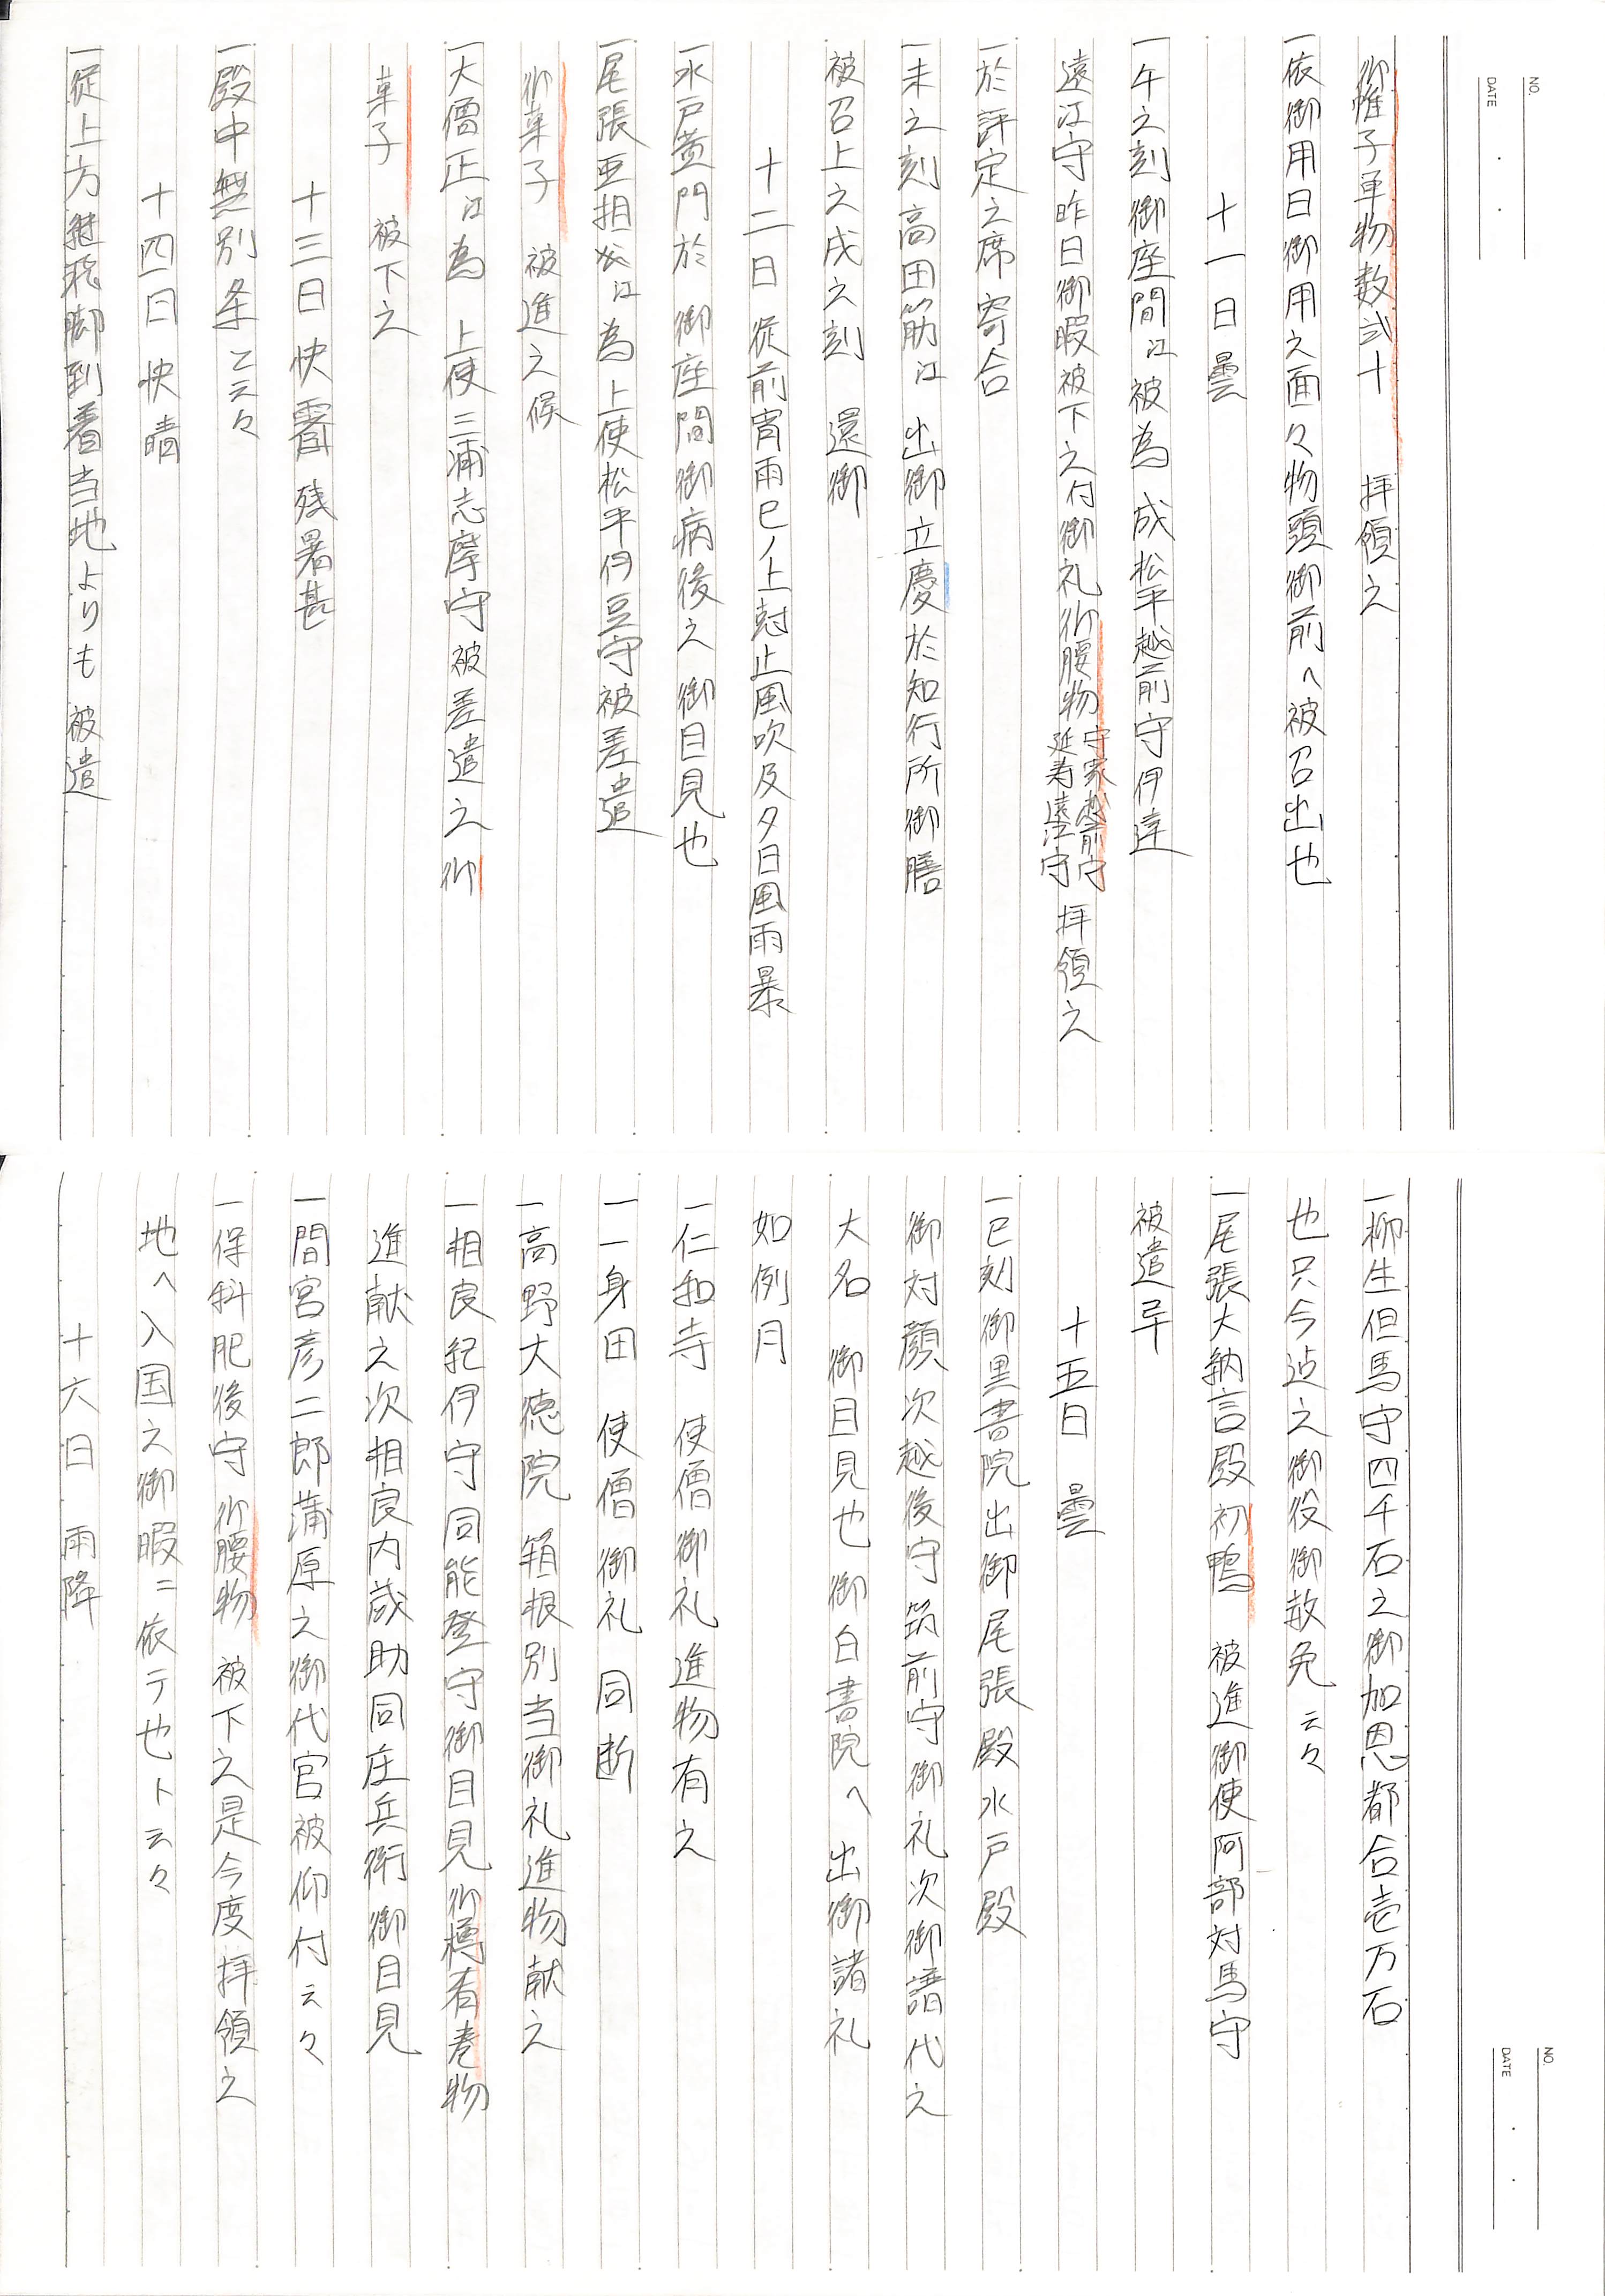 NO.
DATE
御帷子単物数弐十 拝領之
一依御用日御用之面々物頭御前へ被召出也
十一日 曇
一午之刻御座間江被為 成松平越前守伊達
遠江守昨日御暇被下之付御礼御腰物 守家越前守 延寿遠江守 拝領之
一於評定之席寄合
一未之刻高田筋江 出御立慶於知行所御膳
被召上之戌之刻 還御
十二日 従前宵雨巳ノ上尅止風吹及夕日風雨暴
一水戸黄門於 御座間御病後之 御目見也
一尾張亜相公江為 上使松平伊豆守被差遣
御菓子 被進之候
一大僧正江為 上使三浦志摩守被差遣之御
菓子 被下之
十三日 快霽 残暑甚
一殿中無別条 云々
十四日 快晴
一従上方継飛脚到着当地よりも 被遣
NO.
DATE
一柳生但馬守四千石之御加恩都合壱万石
也只今迠之御役御赦免 云々
一尾張大納言殿初鴨 被進御使阿部対馬守
被遣畢
十五日 曇
一巳刻御黒書院出御尾張殿水戸殿
御対顔次越後守筑前守御礼次御譜代之
大名 御目見也御白書院へ 出御諸礼
如例月
一仁和寺 使僧御礼進物有之
一一身田 使僧 御礼 同断
一高野大徳院 箱根別当御礼進物献之
一相良紀伊守同能登守御目見御樽肴巻物
進献之次相良内蔵助同庄兵衛御目見
一間宮彦二郎蒲原之御代官被仰付云々
一保科肥後守御腰物 被下之是今度拝領之
地へ入国之御暇ニ依テ也ト云々
十六日 雨降